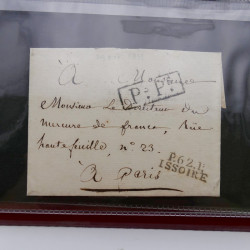 À Monsieur
P. P.
Monsieur Le Directeur du
mercure de france, Rüe
hautefeuille, n° 23.
P.62.P.
ISSOIRE
À Paris